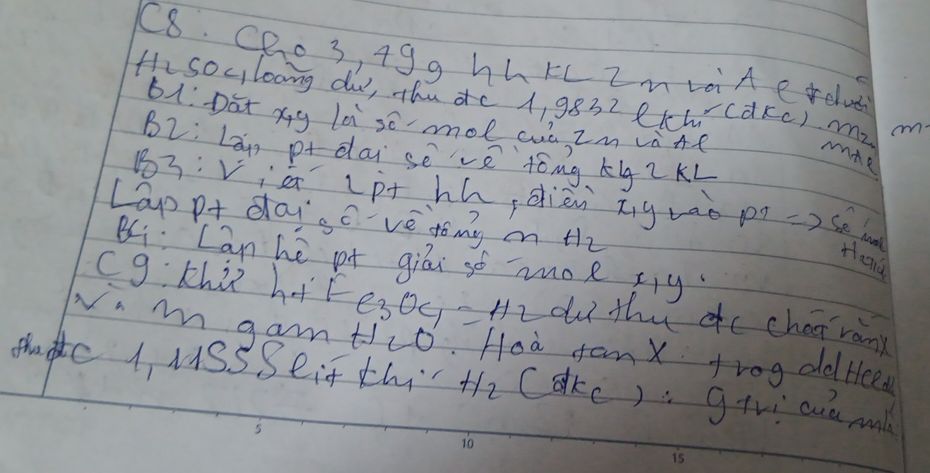 C8. Cho 3,79g hh KL Zn và Al + dưới
H2SO4 loãng dư, thu đc 1,9832 l khí (đkc). mZn
mAl
B1: Đặt x,y là số mol của Zn và Al
B2: Lập pt đại số về tổng klg 2 KL
B3: Viết 2 pt hh, điền x,y vào pt => số mol
H2
Lập pt đại số về tổng n H2
B4: Lập hệ pt giải số mol x,y.
C9: Khử ht Fe3O4 = H2 dư thu đc chất rắn X
Và m gam H2O. Hoà tan X trog dd HCl dư
thu đc 1,11555 lít khí H2 (đkc): g trị của m là
5
10
15